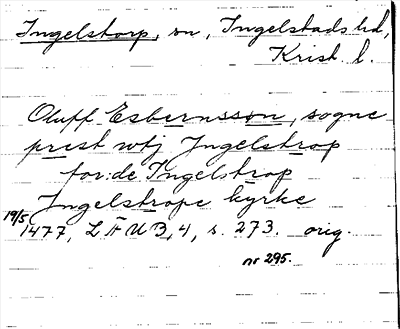 Ingelstorp, sn, Ingelstads hd,
Krist l.
Oluff Esbernsson, sogne
prest wtj Jngelstrop
for:de Ingelstrop
Jngelstrope kyrke
19/5 1477, LÄUB, 4, s. 273. orig.
nr 295.